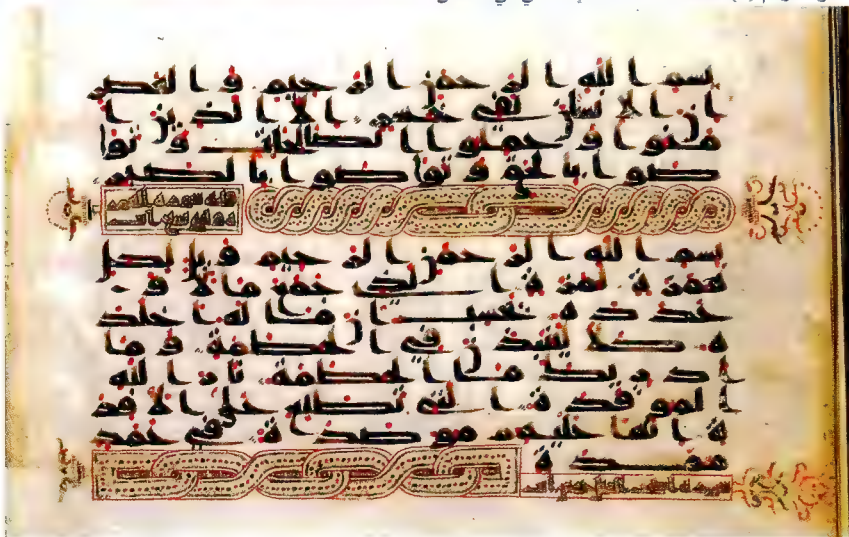 بسم الله الرحمن الرحيم والعصر
ان الانسان لفي خسر الا الذين ا
منوا وعملوا الصالحات وتوا
صوا بالحق وتواصوا بالصبر
بسم الله الرحمن الرحيم ويل لكل
همزة لمزة الذي جمع مالا و
عدده يحسب ان ماله اخلد
ه كلا لينبذن في الحطمة وما
ادريك ما الحطمة نار الله
الموقدة التي تطلع على الافئد
ة انها عليهم موصدة في عمد
ممددة